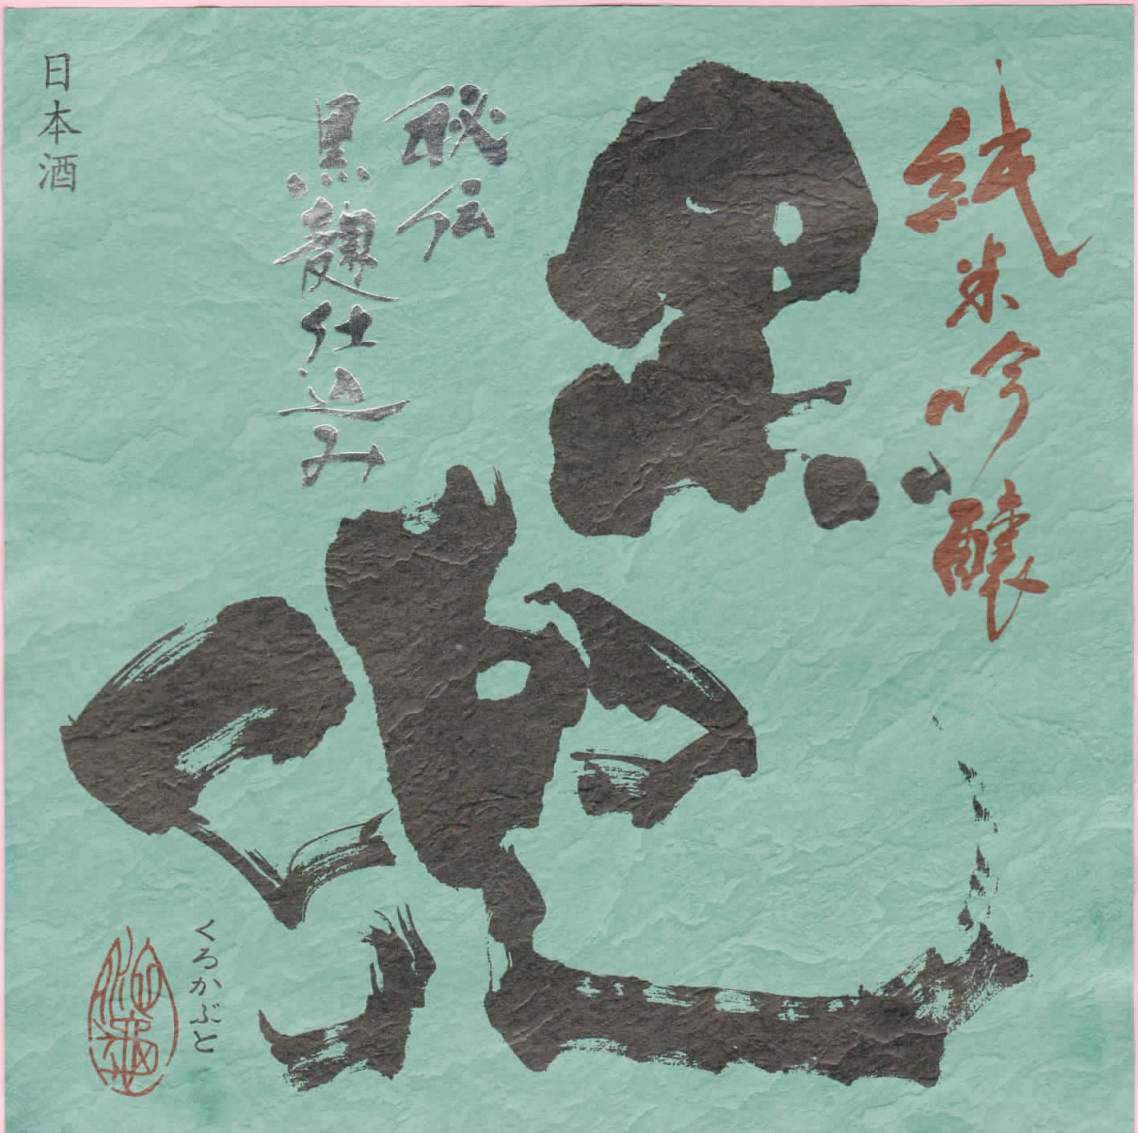 純米吟醸
黒兜
秘伝
黒麹仕込み
日本酒
くろかぶと